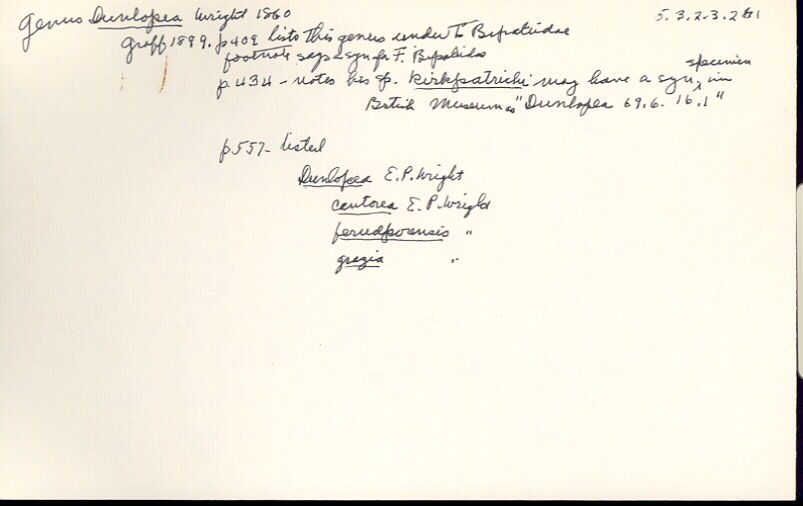 Genus Dunlopea Wright 1860 5.3.2.3.2
Graff 1899. p 409 lists this genus under To Bipaliidae
footnote says syn for F. Bipaliidae
p. 434 - notes his sp. kirkpatricki may have a syn. specimen in
British Museum as "Dunlopea 69.6.16.1"
p 557 - listed
Dunlopea E. P. Wright
cantorea E. P. Wright
ferudpoorensis "
grazia "